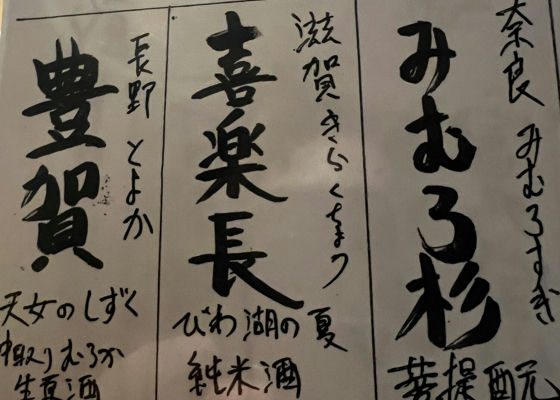 奈良 みむろすぎ
みむろ杉
菩提酛
滋賀 きらくちょう
喜楽長
びわ湖の夏
純米酒
長野 とよか
豊賀
天女のしずく
中取りむろか
生原酒